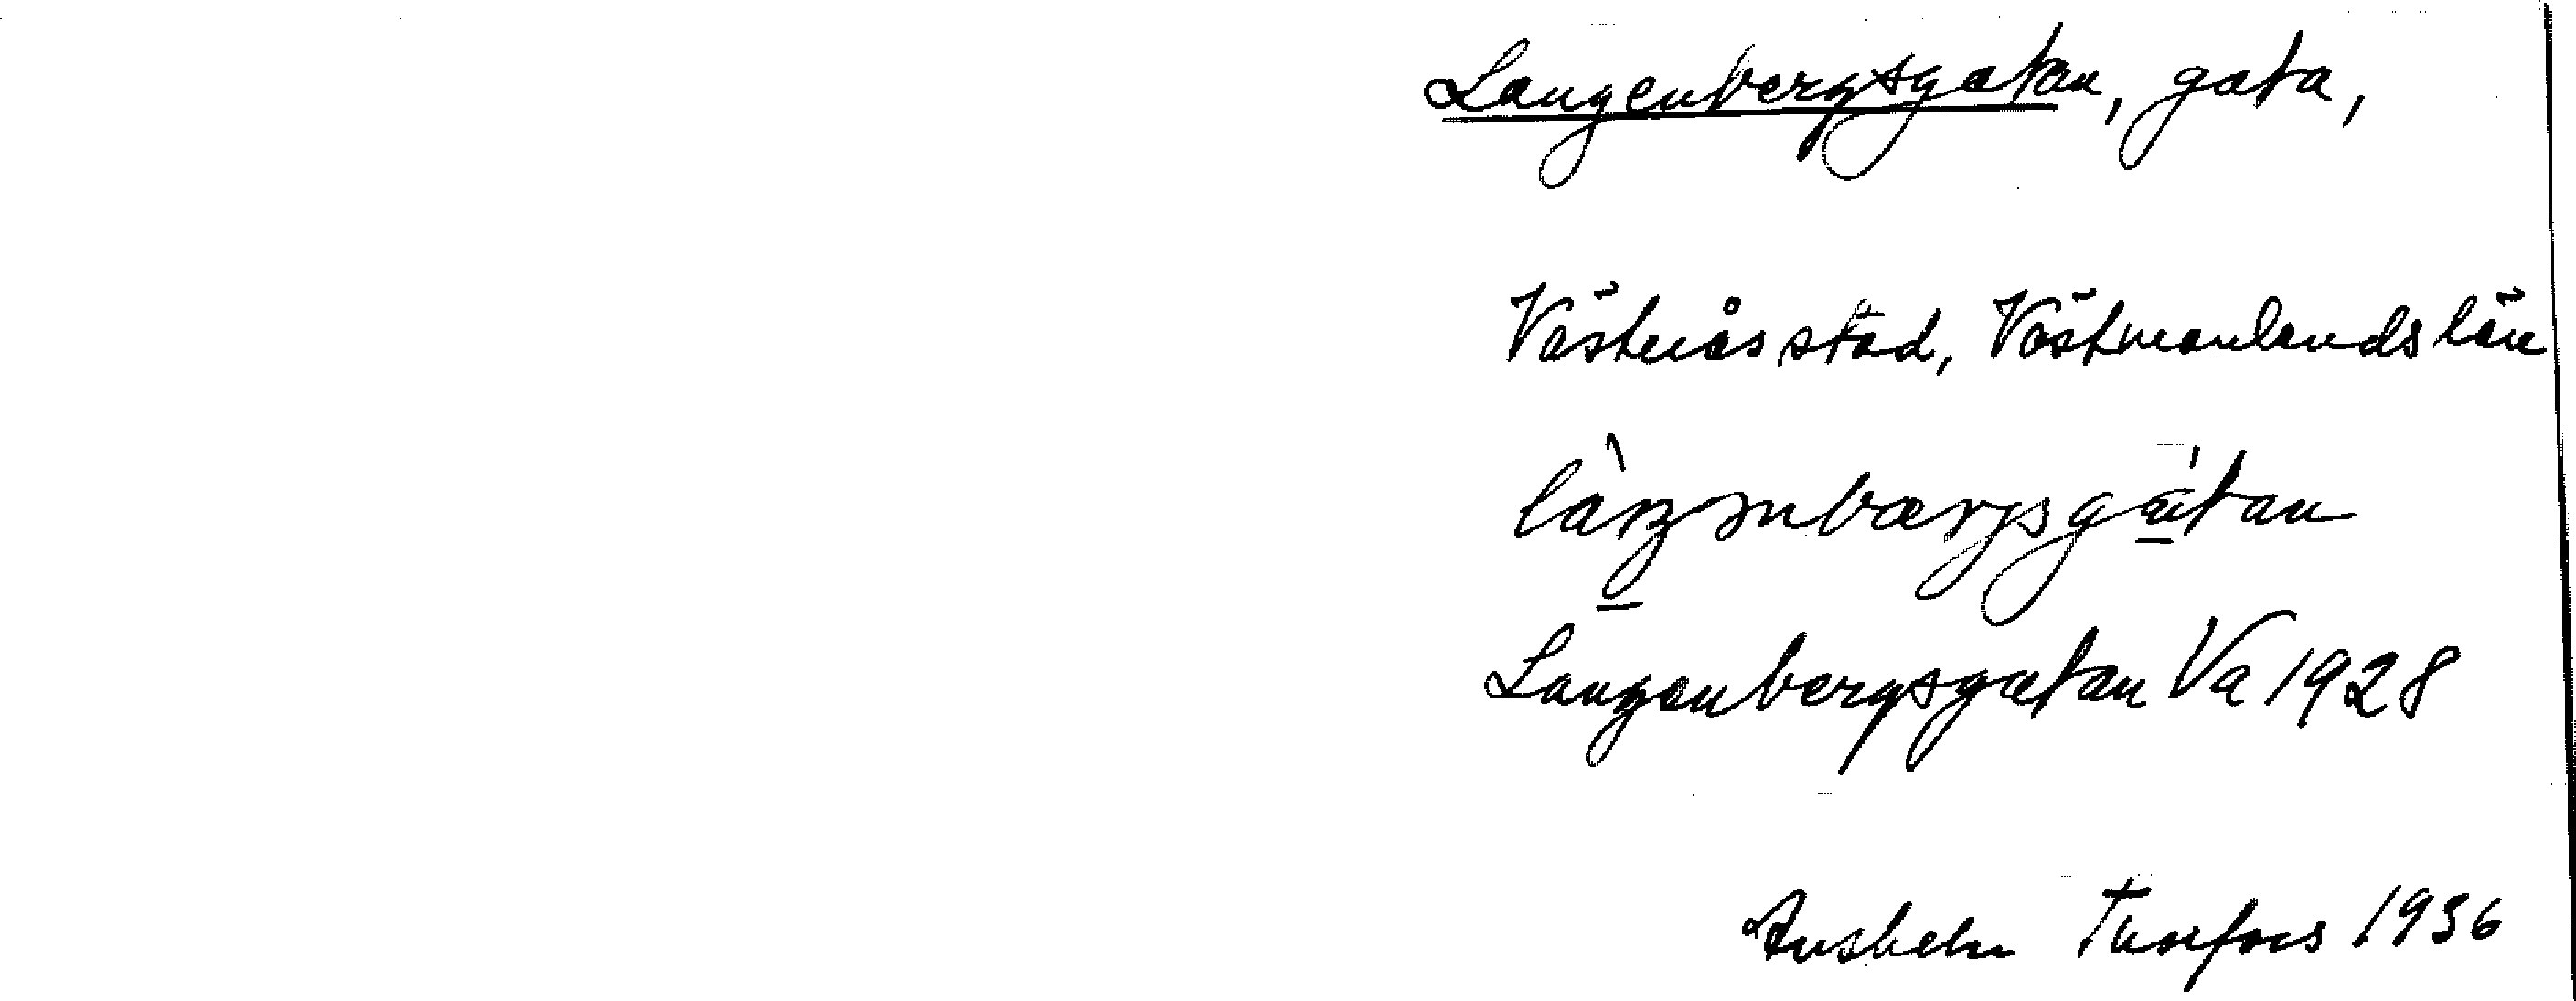 Langenbergsgatan, gata,
Västerås stad, Västmanlands län
Langenbergsgatan Va 1928
Anshelm Thorfors 1936